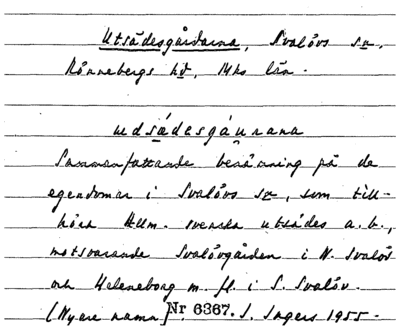 Utsädesgårdarna, Svalövs sn,
Rönnebergs hd, Mhs län.
udsädesgáurana
Sammanfattande benämning på de
egendomar i Svalövs sn, som till-
höra Allm. svenska utsädes a.b.,
motsvarande Svalövgården i N. Svalöv
och Heleneborg m. fl. i S. Svalöv.
(Nyare namn) Nr 6367. S. Ingers 1955.